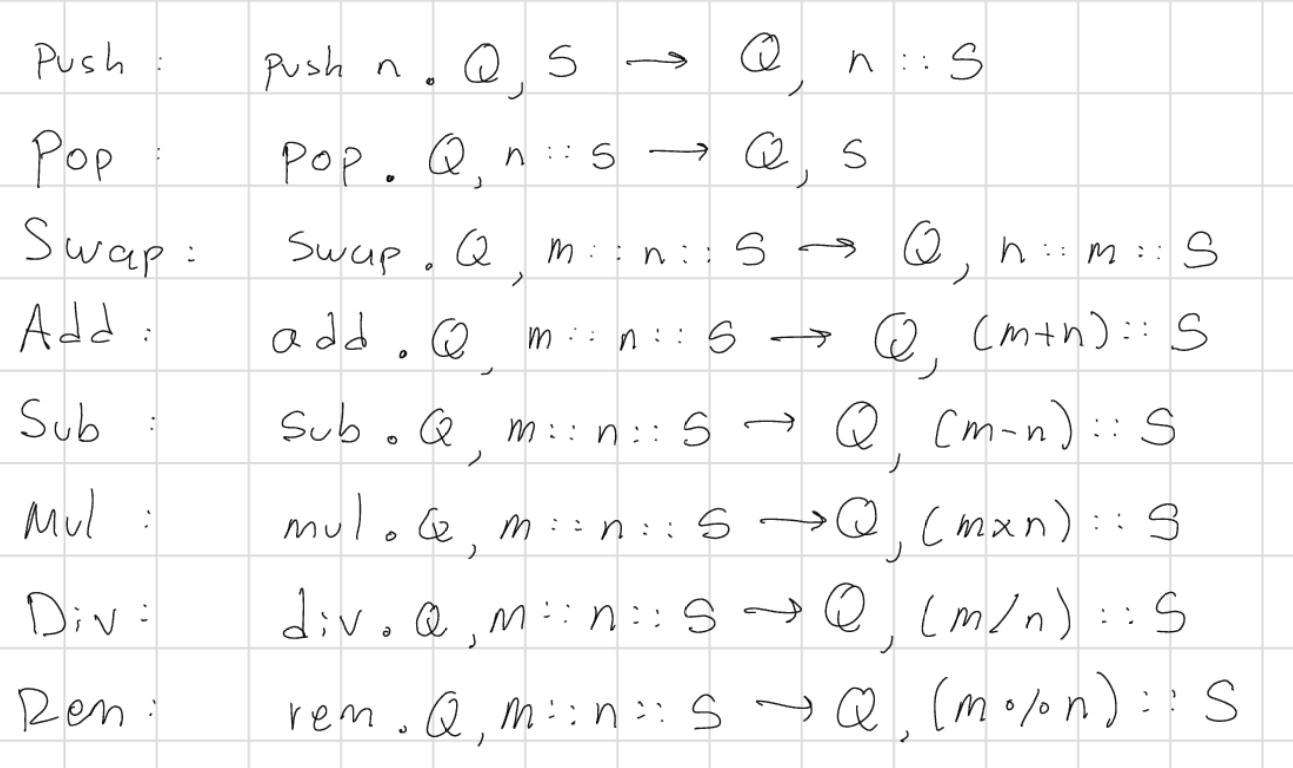 Push : push n . Q, S → Q, n :: S
Pop : pop . Q, n :: S → Q, S
Swap : swap . Q, m :: n :: S → Q, n :: m :: S
Add : add . Q, m :: n :: S → Q, (m+n) :: S
Sub : sub . Q, m :: n :: S → Q, (m-n) :: S
Mul : mul . Q, m :: n :: S → Q, (m×n) :: S
Div : div . Q, m :: n :: S → Q, (m/n) :: S
Rem : rem . Q, m :: n :: S → Q, (m%n) :: S